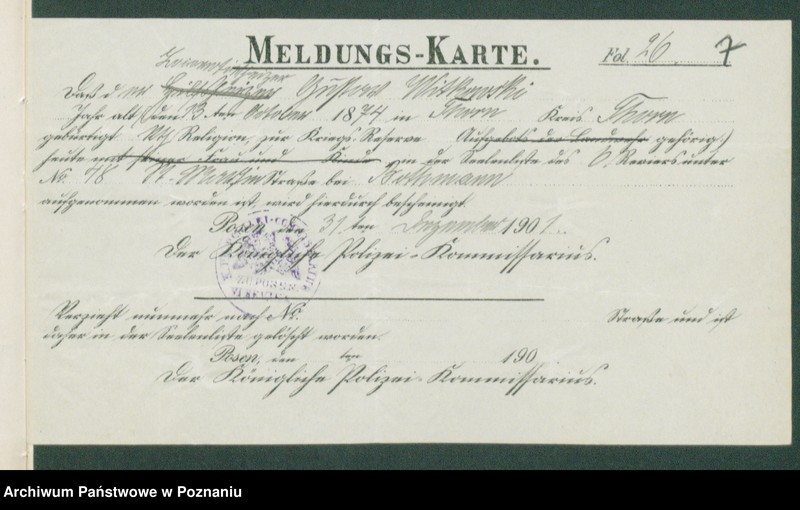 MELDUNGS-KARTE. Fol. 26 7
Daß d er Gustav Witkowski
Jahr alt (den 13. ten October 1874 in Thorn Kreis Thorn
gebürtigt Religion, zur Kriegs-Reserve Aufgebots der Landwehr gehörig)
heute mit seiner Frau und Kind in der Seelenliste des 6 Reviers unter
No. 48 Straße bei Bethmann
aufgenommen worden ist, wird hierdurch bescheinigt.
Posen den 31 ten Dezember 1901.
Der Königliche Polizei-Kommissarius.
Verzieht nunmehr nach No. Straße und ist
daher in der Seelenliste gelöscht worden.
Posen, den ten 190
Der Königliche Polizei-Kommissarius.
Archiwum Państwowe w Poznaniu